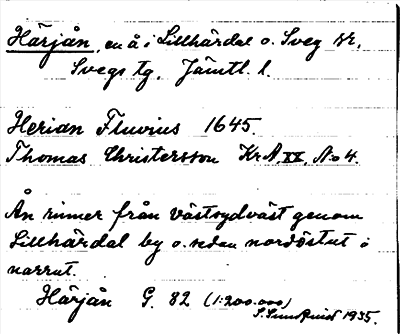 Härjån, en å i Lillhärdal o. Sveg sr,
Svegs tg, Jämtl. l.
Herian Fluvius 1645.
Thomas Christersson Kr.A. XX, No 4.
Ån rinner från västsydväst genom
Lillhärdal by o. sedan nordöstut i
norrut.
Härjån G. 82 (1:200.000)
1935.